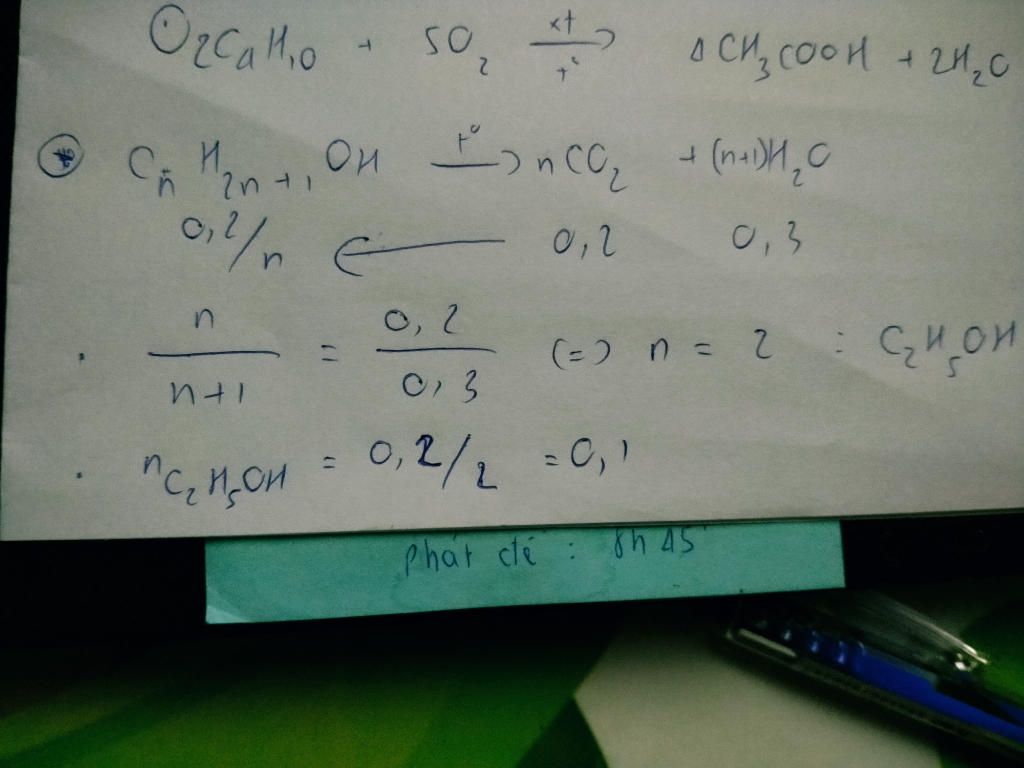 2C₄H₁₀ + 5O₂ —xt, t°→ 4CH₃COOH + 2H₂O
CnH₂n+₁OH —t°→ nCO₂ + (n+1)H₂O
0,2/n ← 0,2 0,3
. n/(n+1) = 0,2/0,3 (=) n = 2 : C₂H₅OH
. nC₂H₅OH = 0,2/2 = 0,1
phát đề : 8h45'